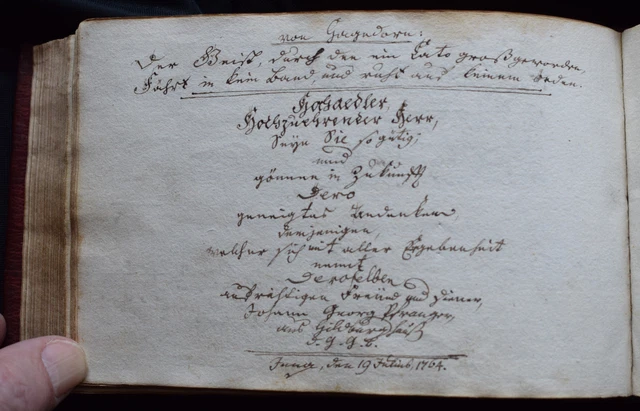 von Hagedorn:
Der Geist, durch den ein Cato groß geworden,
Fährt in kein Band und ruht auf keinem Orden.
Hochedler,
Hochzuehrender Herr,
Seyn Sie so gütig,
und
gönnen in Zukunft
Dero
geneigtes Andenken
demjenigen,
welcher sich mit aller Ergebenheit
nennt
Deroselben
aufrichtigen Freund und Diener,
Johann Georg Pfranger,
aus Hildburghauß
d. G. G. B.
Jena, den 19 Julius, 1764.